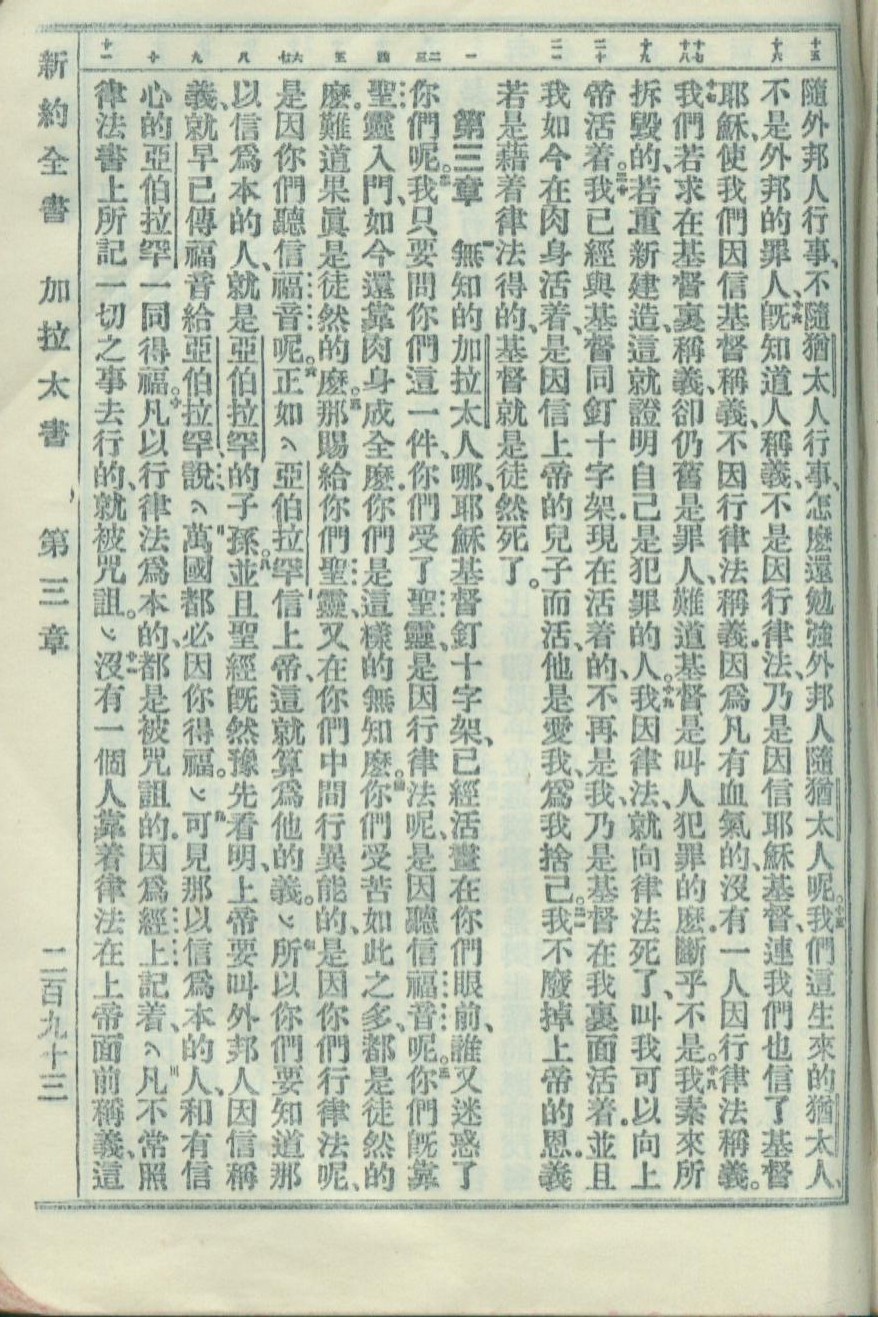 十五 十六 十七 十八 十九 二十 二一 一 二 三 四 五 六 七 八 九 十 十一
隨外邦人行事、不隨猶太人行事、怎麽還勉強外邦人隨猶太人呢。十五我們這生來的猶太人、
不是外邦的罪人、十六旣知道人稱義、不是因行律法、乃是因信耶穌基督、連我們也信了基督
耶穌、使我們因信基督稱義、不因行律法稱義．因爲凡有血氣的、沒有一人因行律法稱義。
十七我們若求在基督裏稱義、卻仍舊是罪人、難道基督是叫人犯罪的麽．斷乎不是。十八我素來所
拆毀的、若重新建造、這就證明自己是犯罪的人。十九我因律法、就向律法死了、叫我可以向上
帝活着。二十我已經與基督同釘十字架．現在活着的、不再是我、乃是基督在我裏面活着．並且
我如今在肉身活着、是因信上帝的兒子而活、他是愛我、爲我捨己。二一我不廢掉上帝的恩．義
若是藉着律法得的、基督就是徒然死了。
第三章 一無知的加拉太人哪、耶穌基督釘十字架、已經活畫在你們眼前、誰又迷惑了
你們呢。二我只要問你們這一件、你們受了聖靈、是因行律法呢、是因聽信福音呢。三你們旣靠
聖靈入門、如今還靠肉身成全麽．你們是這樣的無知麽。四你們受苦如此之多、都是徒然的
麽．難道果眞是徒然的麽。五那賜給你們聖靈、又在你們中間行異能的、是因你們行律法呢、
是因你們聽信福音呢。六正如〽亞伯拉罕信上帝、這就算爲他的義。〽七所以你們要知道那
以信爲本的人、就是亞伯拉罕的子孫。八並且聖經旣然豫先看明、上帝要叫外邦人因信稱
義、就早已傳福音給亞伯拉罕、說、〽萬國都必因你得福。〽九可見那以信爲本的人、和有信
心的亞伯拉罕一同得福。十凡以行律法爲本的、都是被咒詛的．因爲經上記着、〽凡不常照
律法書上所記一切之事去行的、就被咒詛。〽十一沒有一個人靠着律法在上帝面前稱義、這
新約全書 加拉太書 第三章 二百九十三